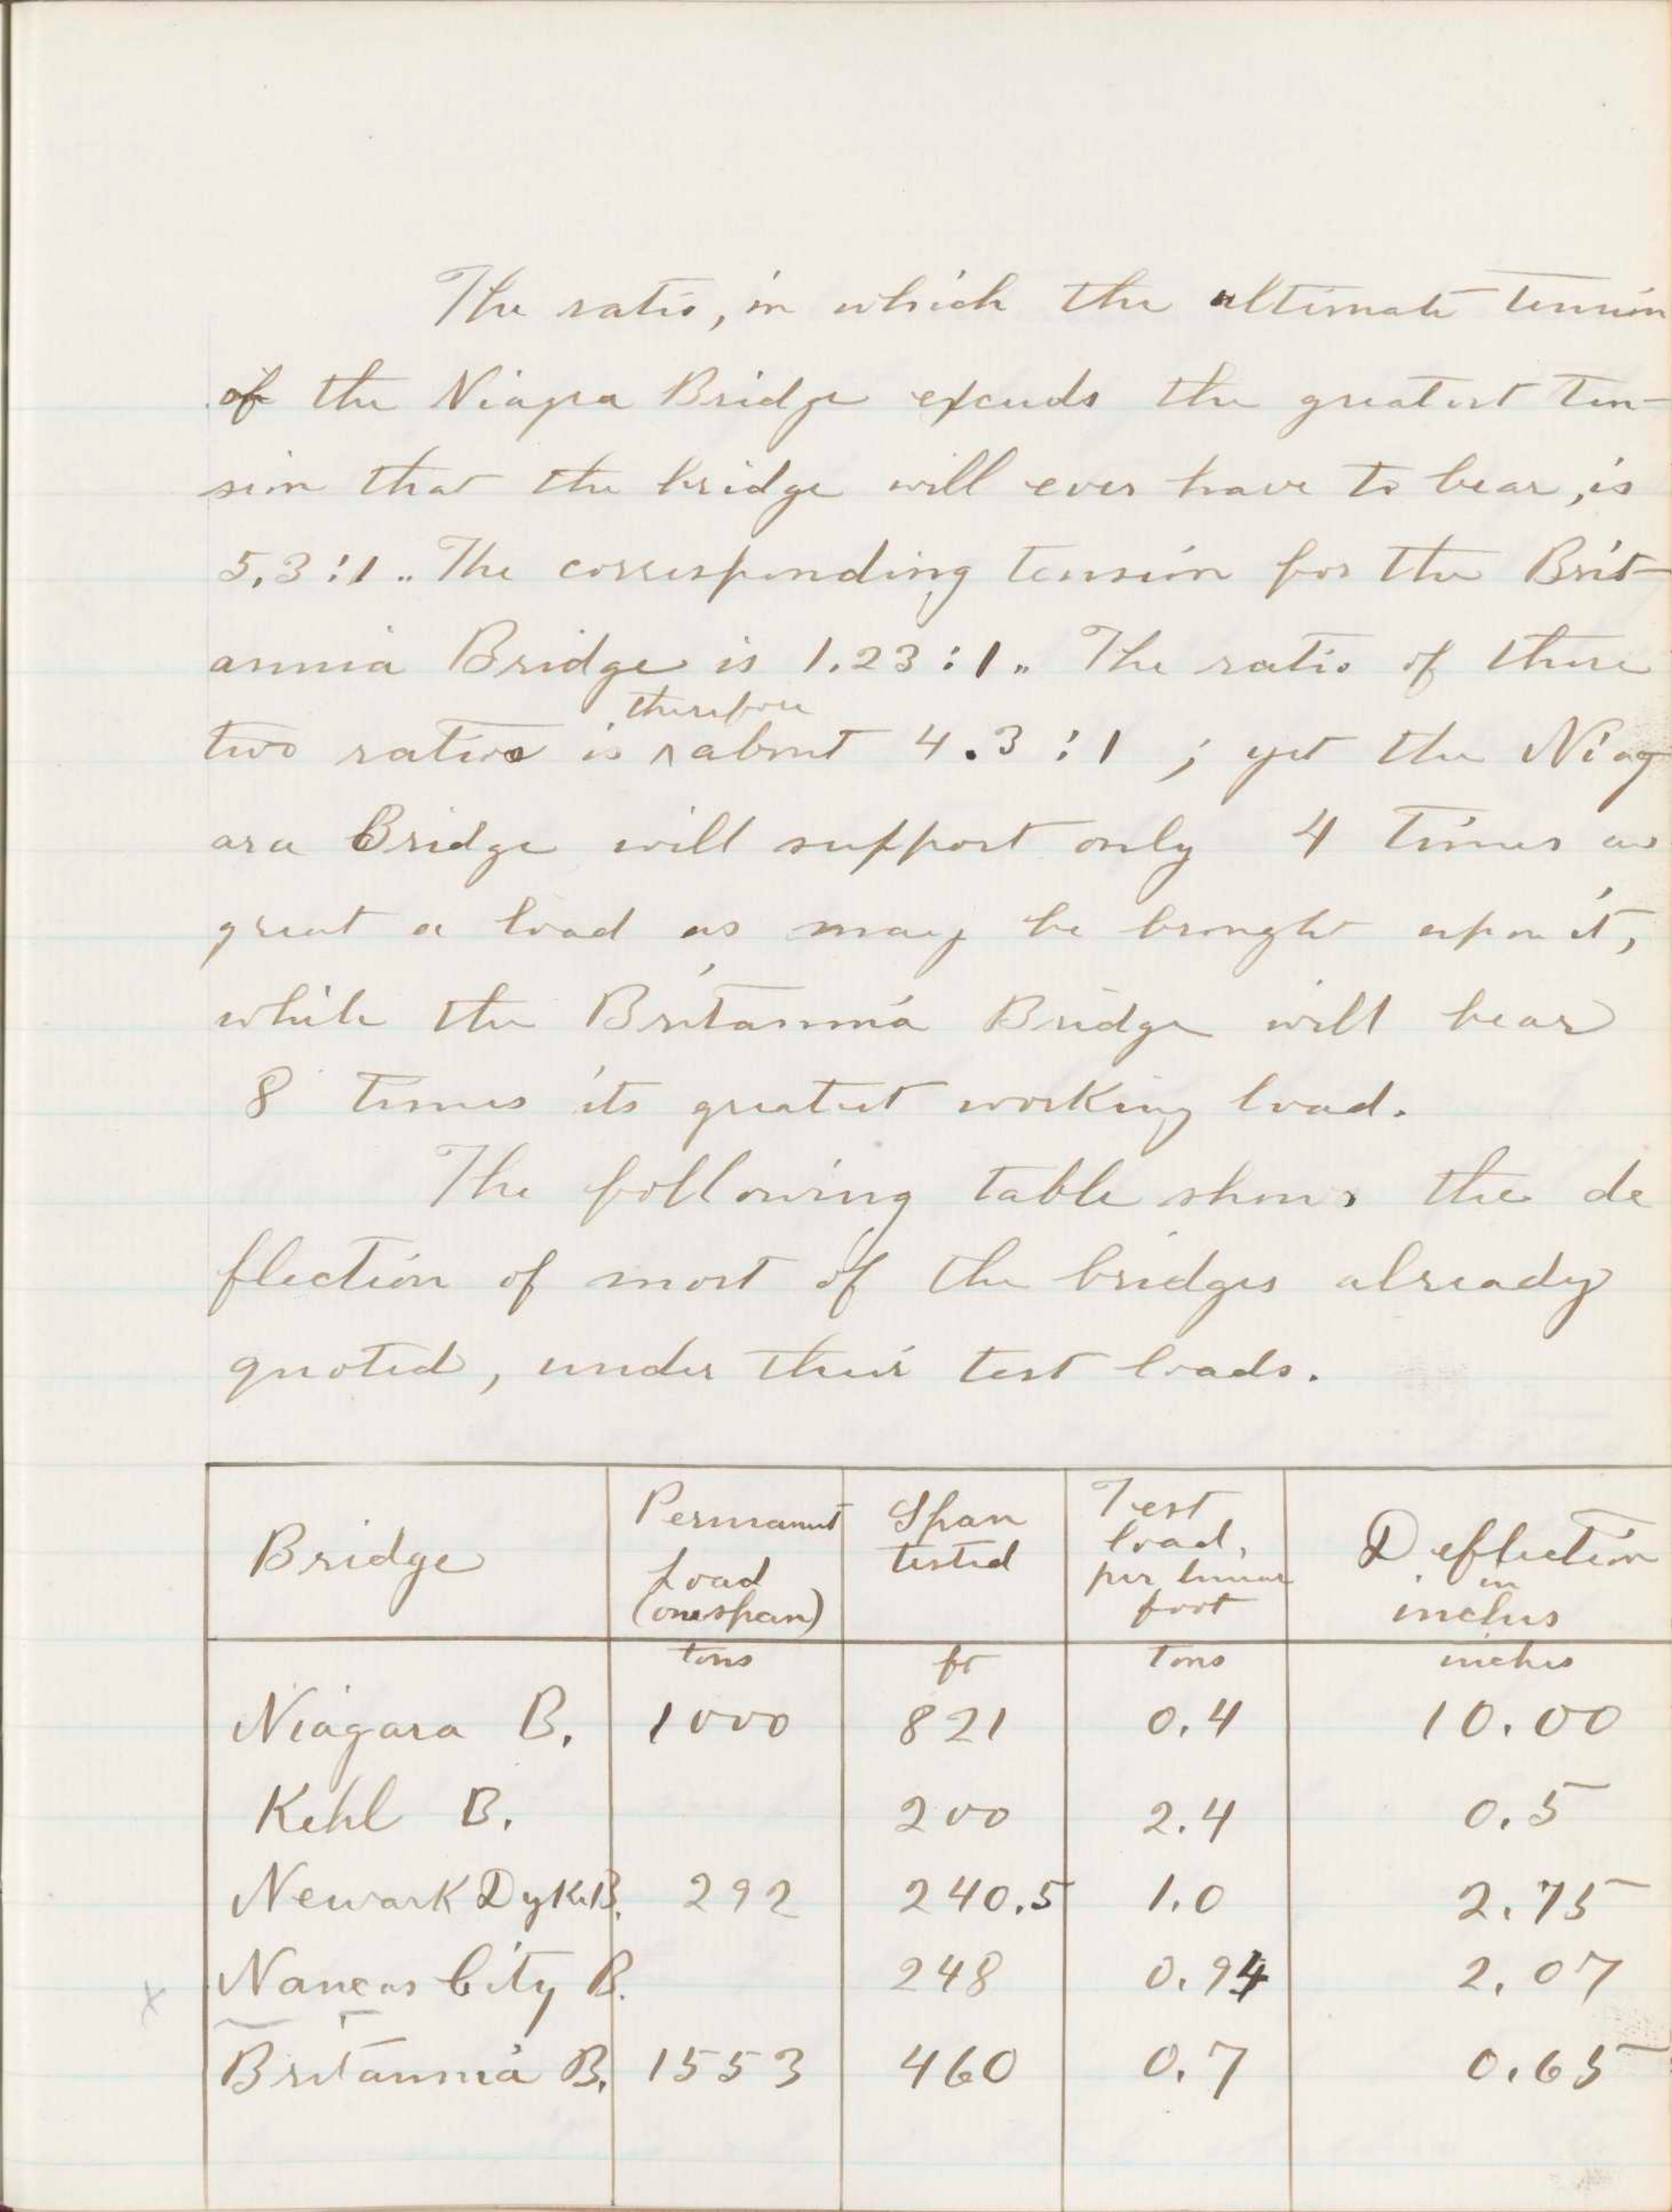 The ratio, in which the ultimate tension
of the Niagra Bridge exceeds the greatest ten-
sion that the bridge will ever have to bear, is
5.3:1.. The corresponding tension for the Brit-
annia Bridge is 1.23:1.. The ratio of these
therefore
two ratios is ^ about 4.3:1 ; yet the Niag
ara Bridge will support only 4 times as
great a load as may be brought upon it,
while the Britannia Bridge will bear
8 times its greatest working load.
The following table shows the de
flection of most of the bridges already
quoted, under their test loads.
Bridge | Permanent Load (one span) | Span tested | Test load, per linear foot | Deflection in inches
tons | ft | tons | inches
Niagara B. | 1000 | 821 | 0.4 | 10.00
Kehl B. | | 200 | 2.4 | 0.5
Newark Dyke B. | 292 | 240.5 | 1.0 | 2.75
x City B. | | 248 | 0.94 | 2.07
Britannia B. | 1553 | 460 | 0.7 | 0.65